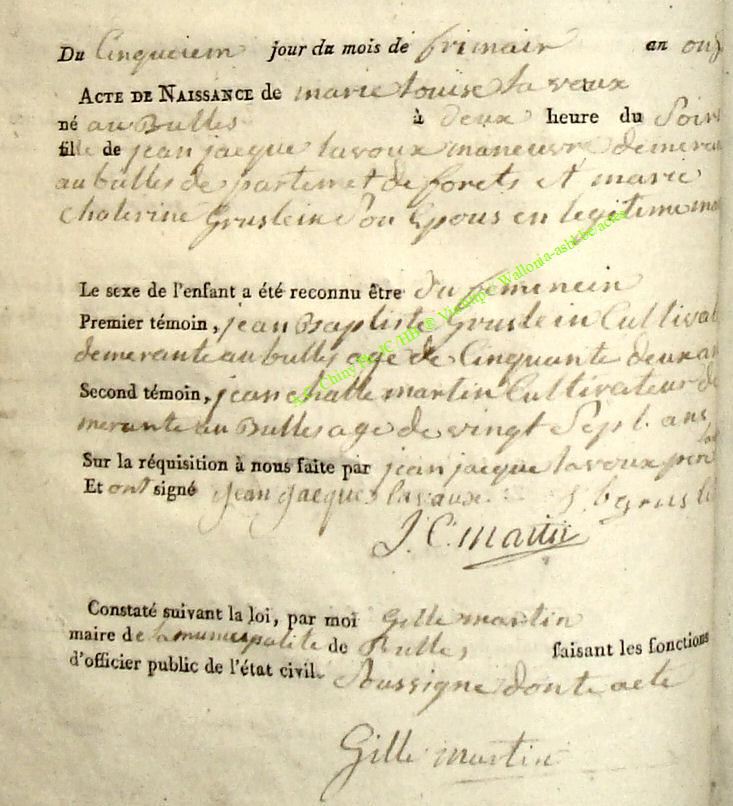 Du Cinquciem jour du mois de frimair an onz
ACTE DE NAISSANCE de marie louise la voux
né au Bulles à deux heure du Soir
fille de jean jacque lavoux maneuvre demeran
au bulles de partemet de forets et marie
chaterine Gruslein Son Epous en legitime ma
Le sexe de l'enfant a été reconnu être du femenein
Premier témoin, jean Baptiste Gruslein Cultivat
demerante au bulles age de Cinquante deux an
Second témoin, jean chatte martin Cultivateur de
merante au Bulles age de vingt Sept ans
Sur la réquisition à nous faite par jean jacque lavoux per
Et ont signé jean jacque lavaux J. b grusl
J. C. martin
Constaté suivant la loi, par moi Gille martin
maire de la municipalite de Bulles faisant les fonctions
d'officier public de l'état civil. Soussigne dont acte
Gille martin